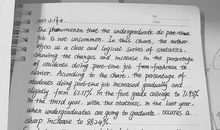 The phenomenon that the undergraduate do part-time
job is not uncommon. In this chart, the author
offers as a clear and logical series of statistics,
showing the changes and increase in the percentage
of students doing part-time job from freshman to
senior. According to the chart, the percentage of
students doing part-time job increased gradually and
slightly from 67.77%. In the first grade to 71.93%
in the third year. With the statistic in the last year
when undergraduates are going to graduate,
sharp increase to 88.24%.